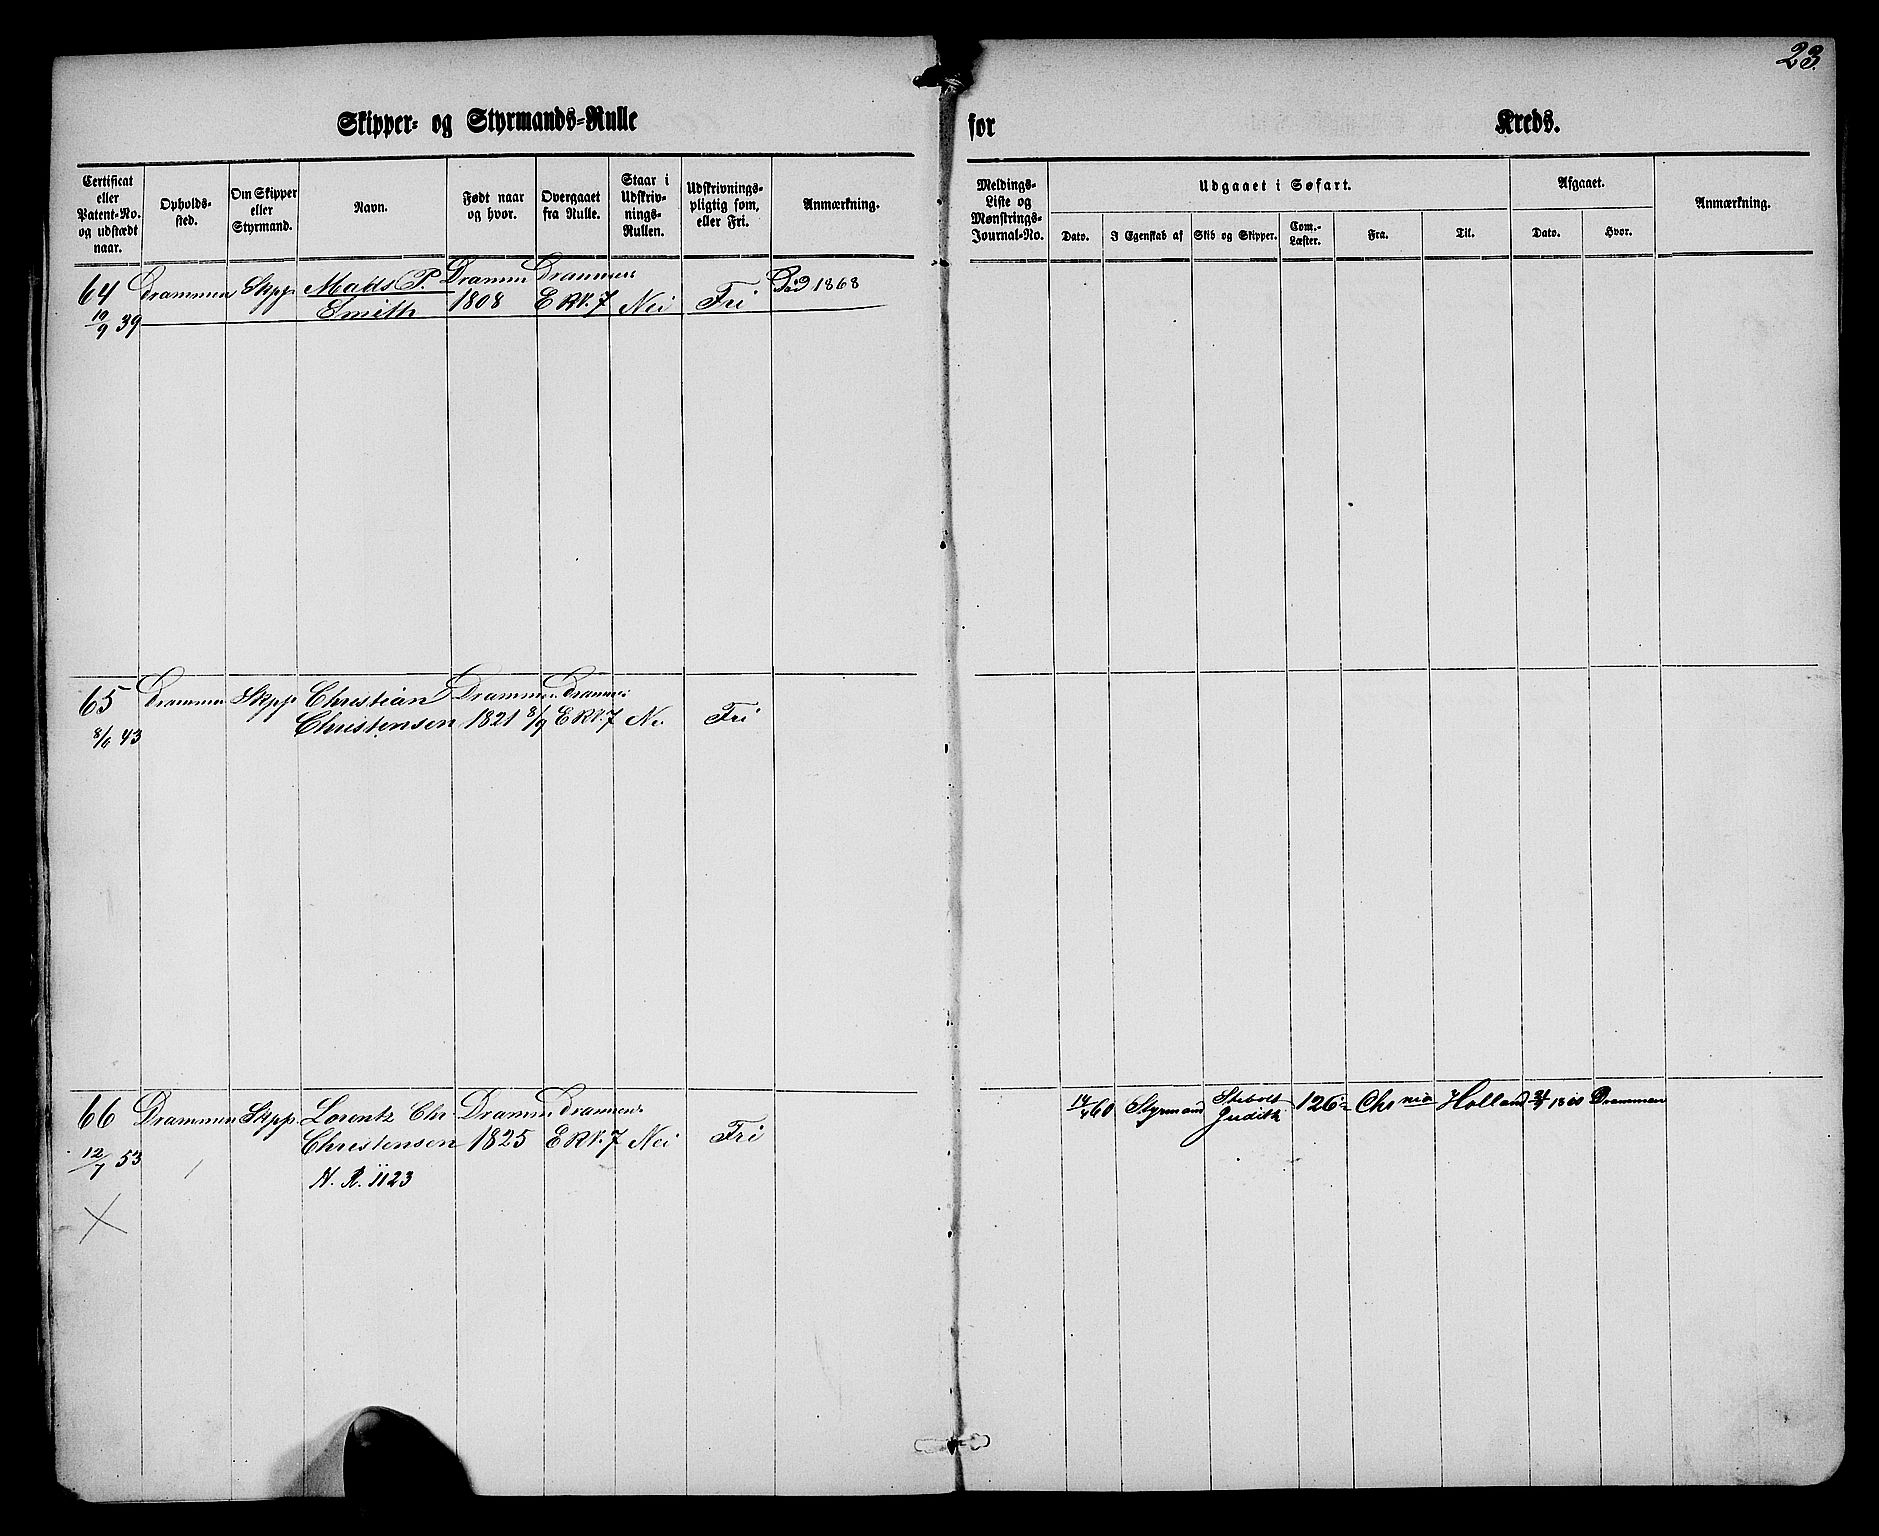 23.
Skipper- og Styrmands-Rulle for Kreds.
Certificat eller Patent-No. og udstædt naar.
Opholds-sted.
Om Skipper eller Styrmand.
Navn.
Født naar og hvor.
Overgaaet fra Rulle.
Staar i Udskriv-nings-Rullen.
Udskrivnings-pligtig som, eller Fri.
Anmærkning.
Meldings-Liste og Mønstrings-Journal-No.
Udgaaet i Søfart.
Dato.
I Egenskab af
Skib og Skipper.
Com.-Læster.
Fra.
Til.
Afgaaet.
Dato.
Hvor.
Anmærkning.
64 Drammen Skpp. Matts P. Dramm Drammens Død 1868
Smith 1808 E RN. 7 Nei Fri
19/9 39
65 Drammen Skpp Christian Drammen Drammens
Christensen 1821 8/9 E RN. 7 Nei Fri
8/6 43
66 Drammen Skpp. Lorentz Chr. Dramm Drammens 14/4 60 Styrmand 126 Chr nia Holland 1860 Drammen
Christensen 1825 E RN. 7 Nei Fri Judith
12/7 53
N. R. 1123